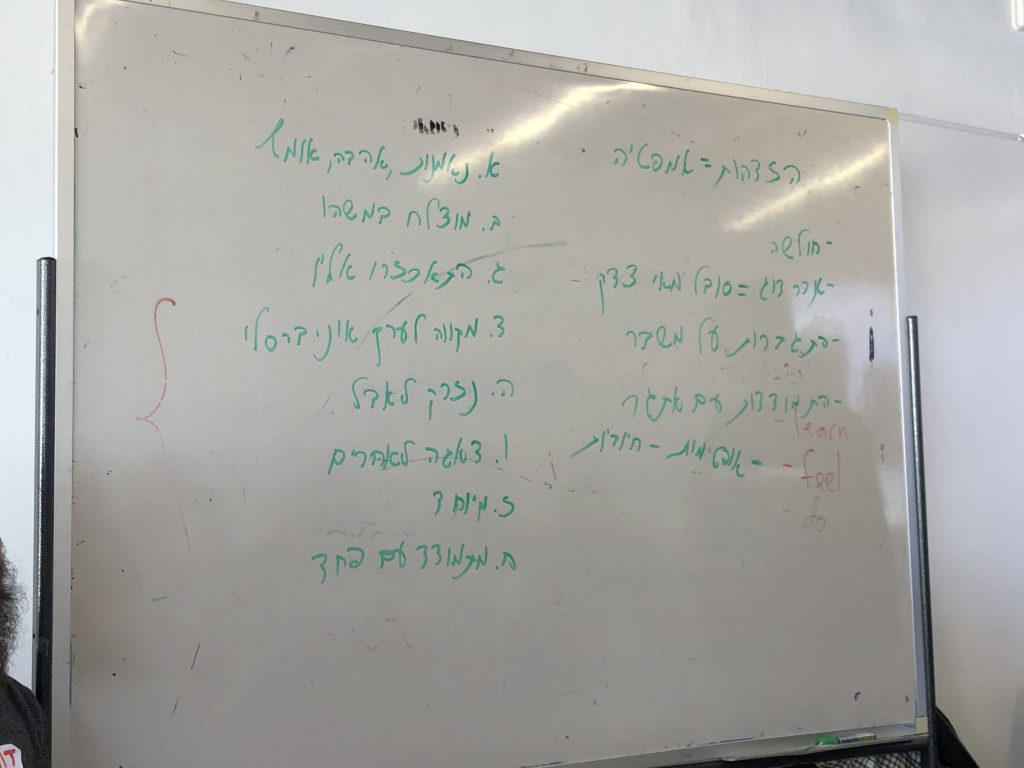 הזדהות = אמפטיה
- חולשה
- אנדרדוג = סובל מאי צדק
- התגברות על משבר
- התמודדות עם אתגר
- אופטימיות - חיוביות
- learn
- feel
- do
א. נאמנות, אהבה, אומץ
ב. מוצלח במשהו
ג. התאכזרו אליו
ד. מקווה לערך אוניברסלי
ה. נזרק לאבל
ו. דאגה לאחרים
ז. מיוחד
ח. מתמודד עם פחד